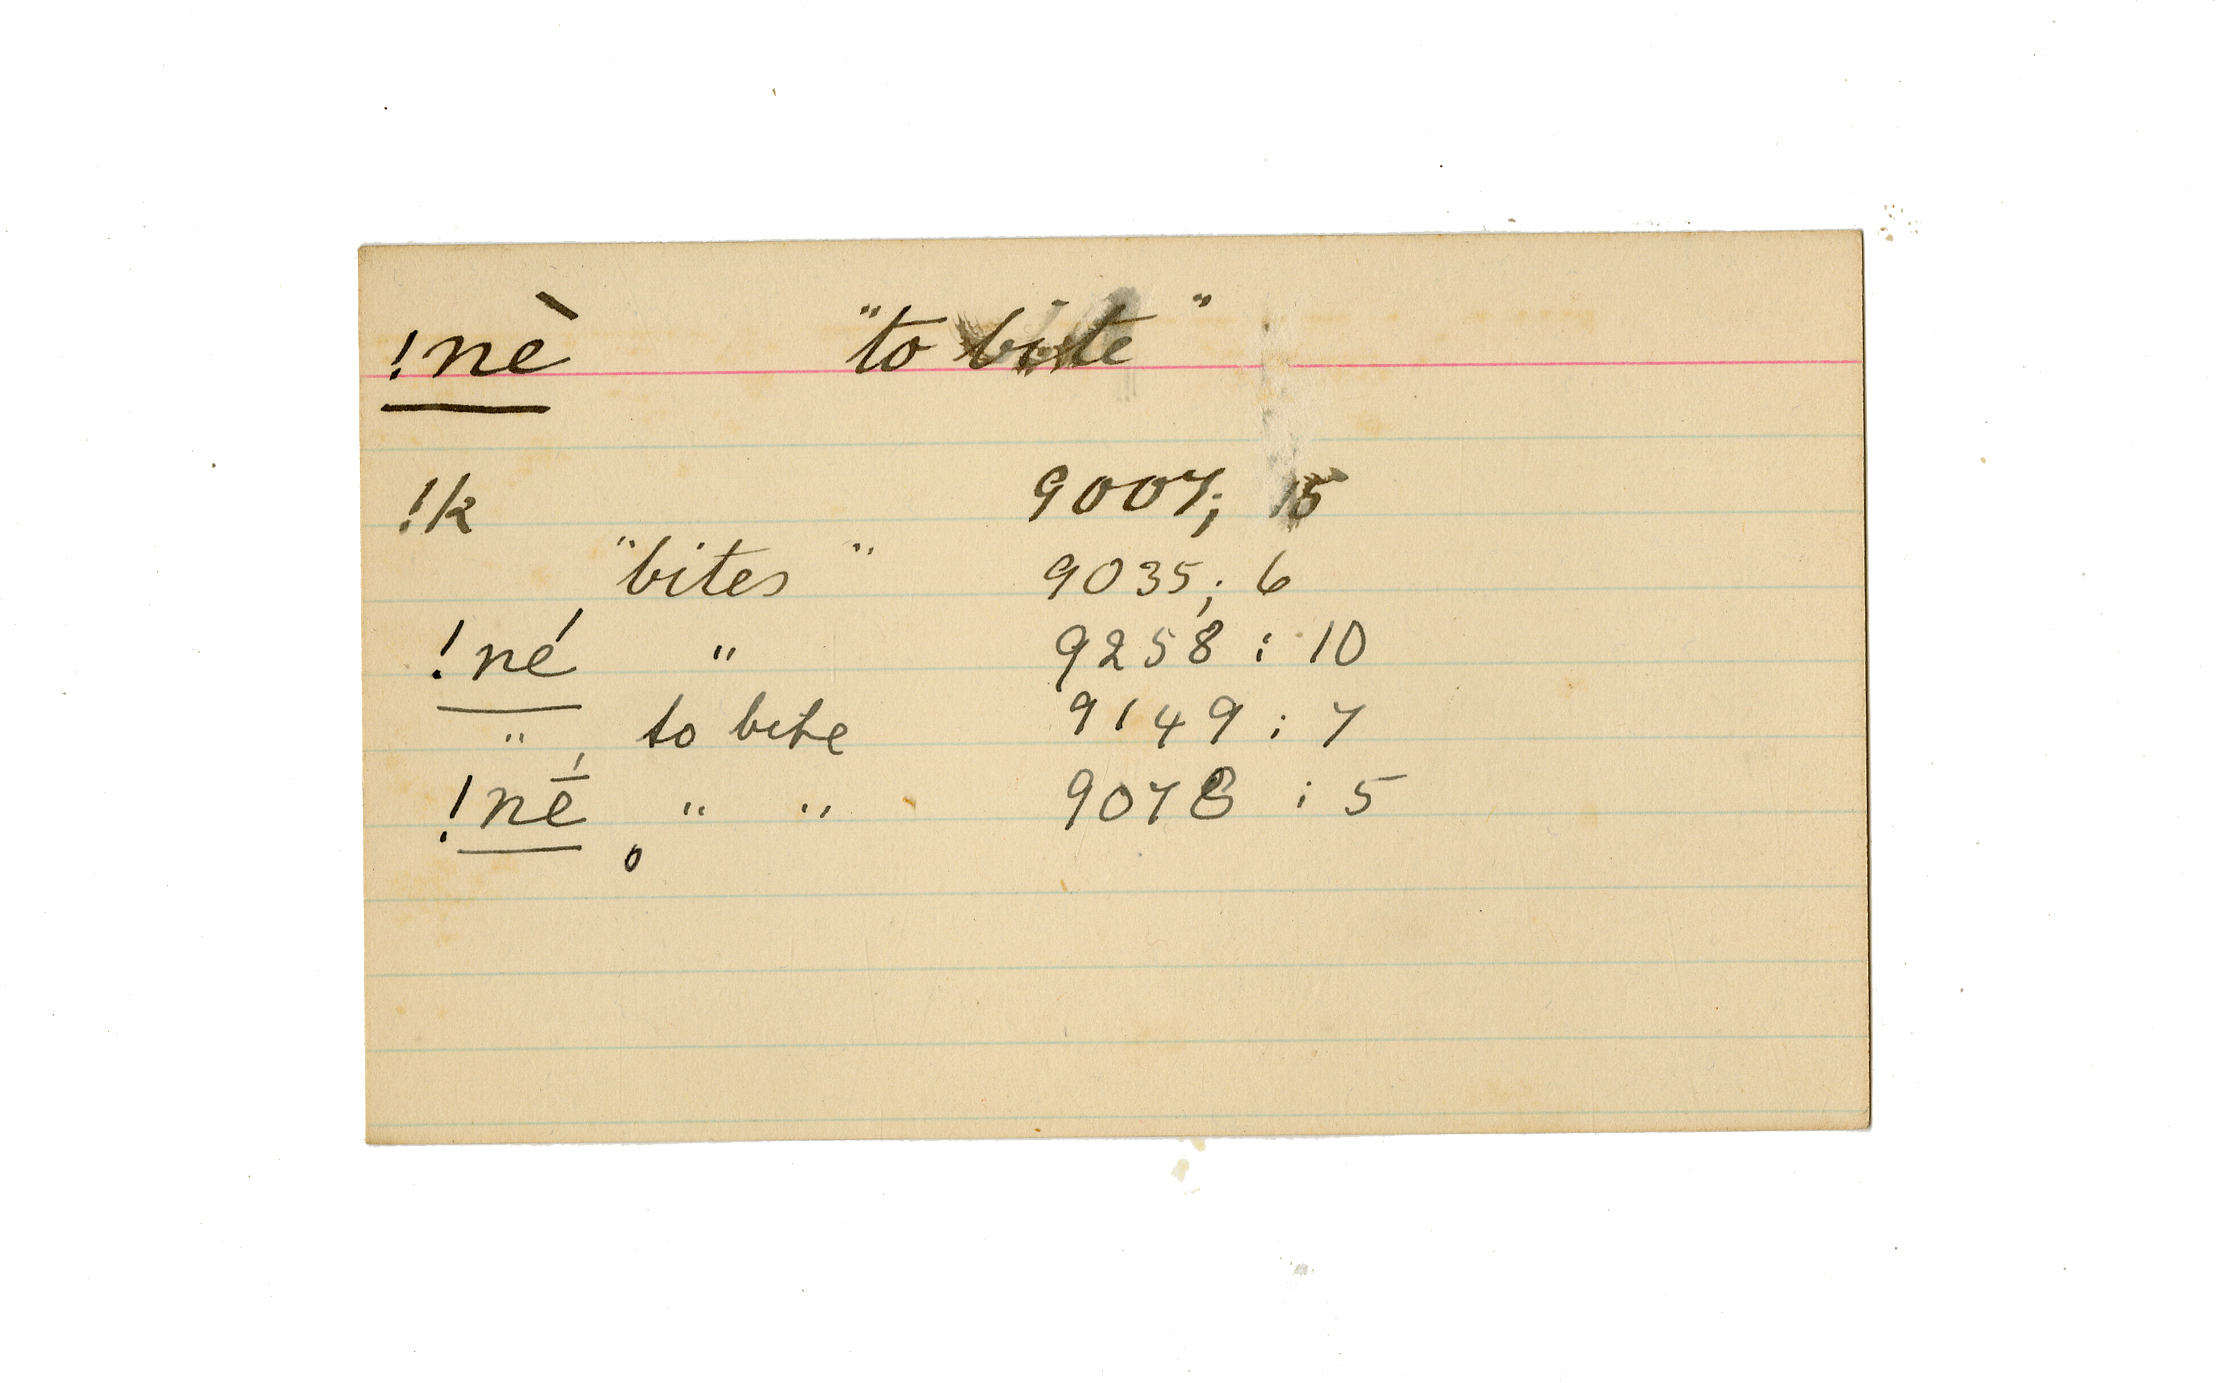 !nè "to bite"
!k 9007; 15
"bites" 9035; 6
!né " 9258 : 10
" to bite 9149 : 7
!nḗ " " 9078 : 5